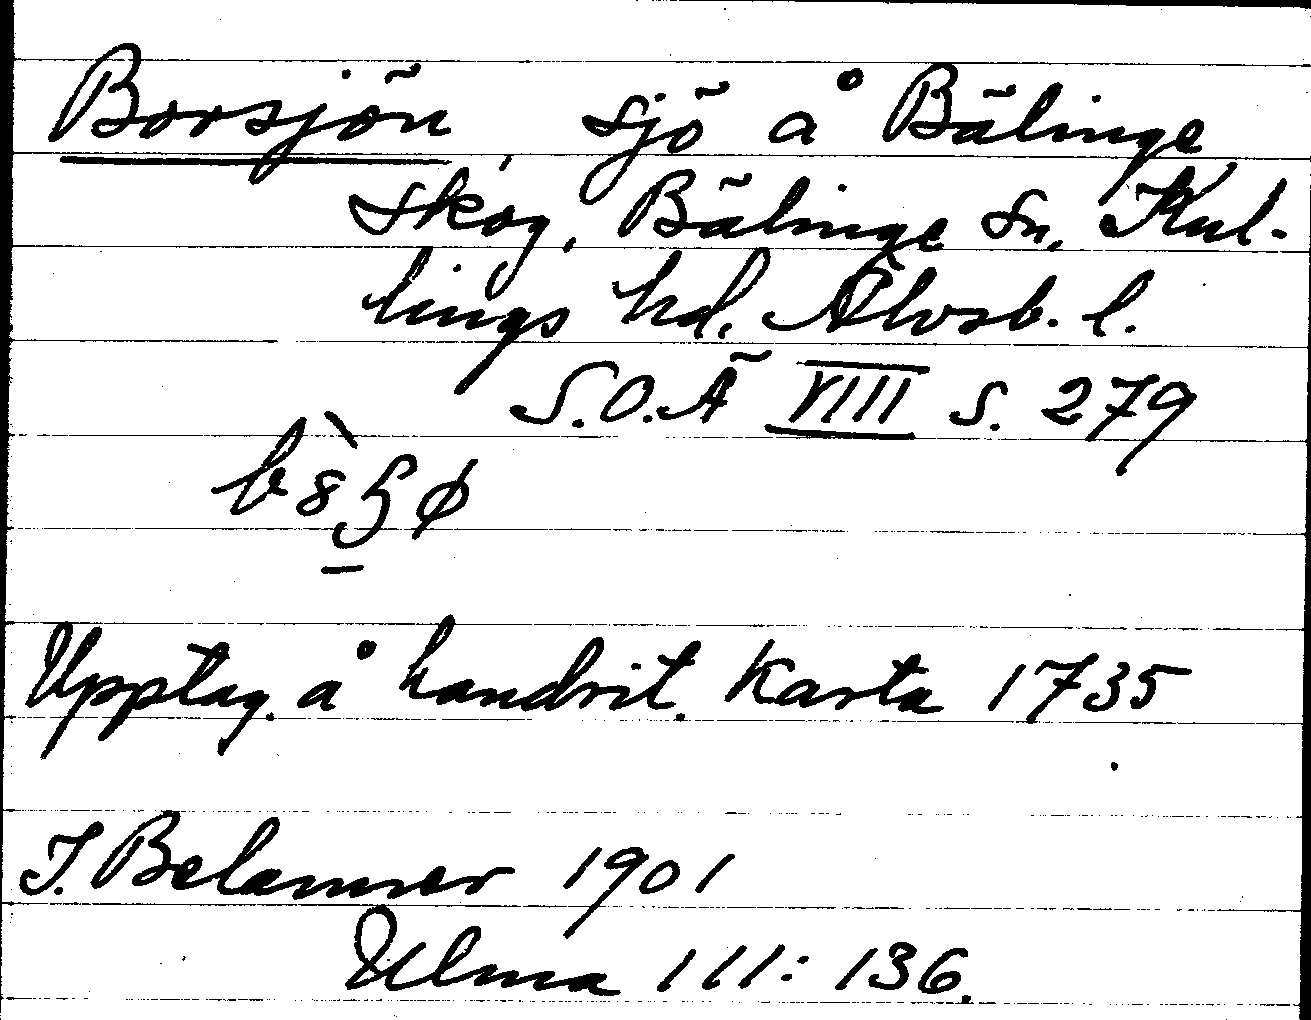 Borsjön, sjö å Bälinge
skog, Bälinge sn, Kul-
lings hd. Älvsb. l.
S.O.Ä VIII s. 279
Upptag. å handrit. Karta 1735
J. Belanner 1901
Ulma 111: 136.